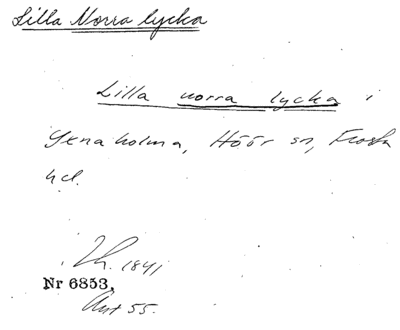 Lilla Norra lycka
Lilla norra lycka i
Yxnaholma, Höör sn, Frosta
hd.
Lh. 1841
Nr 6853,
Ant 55.